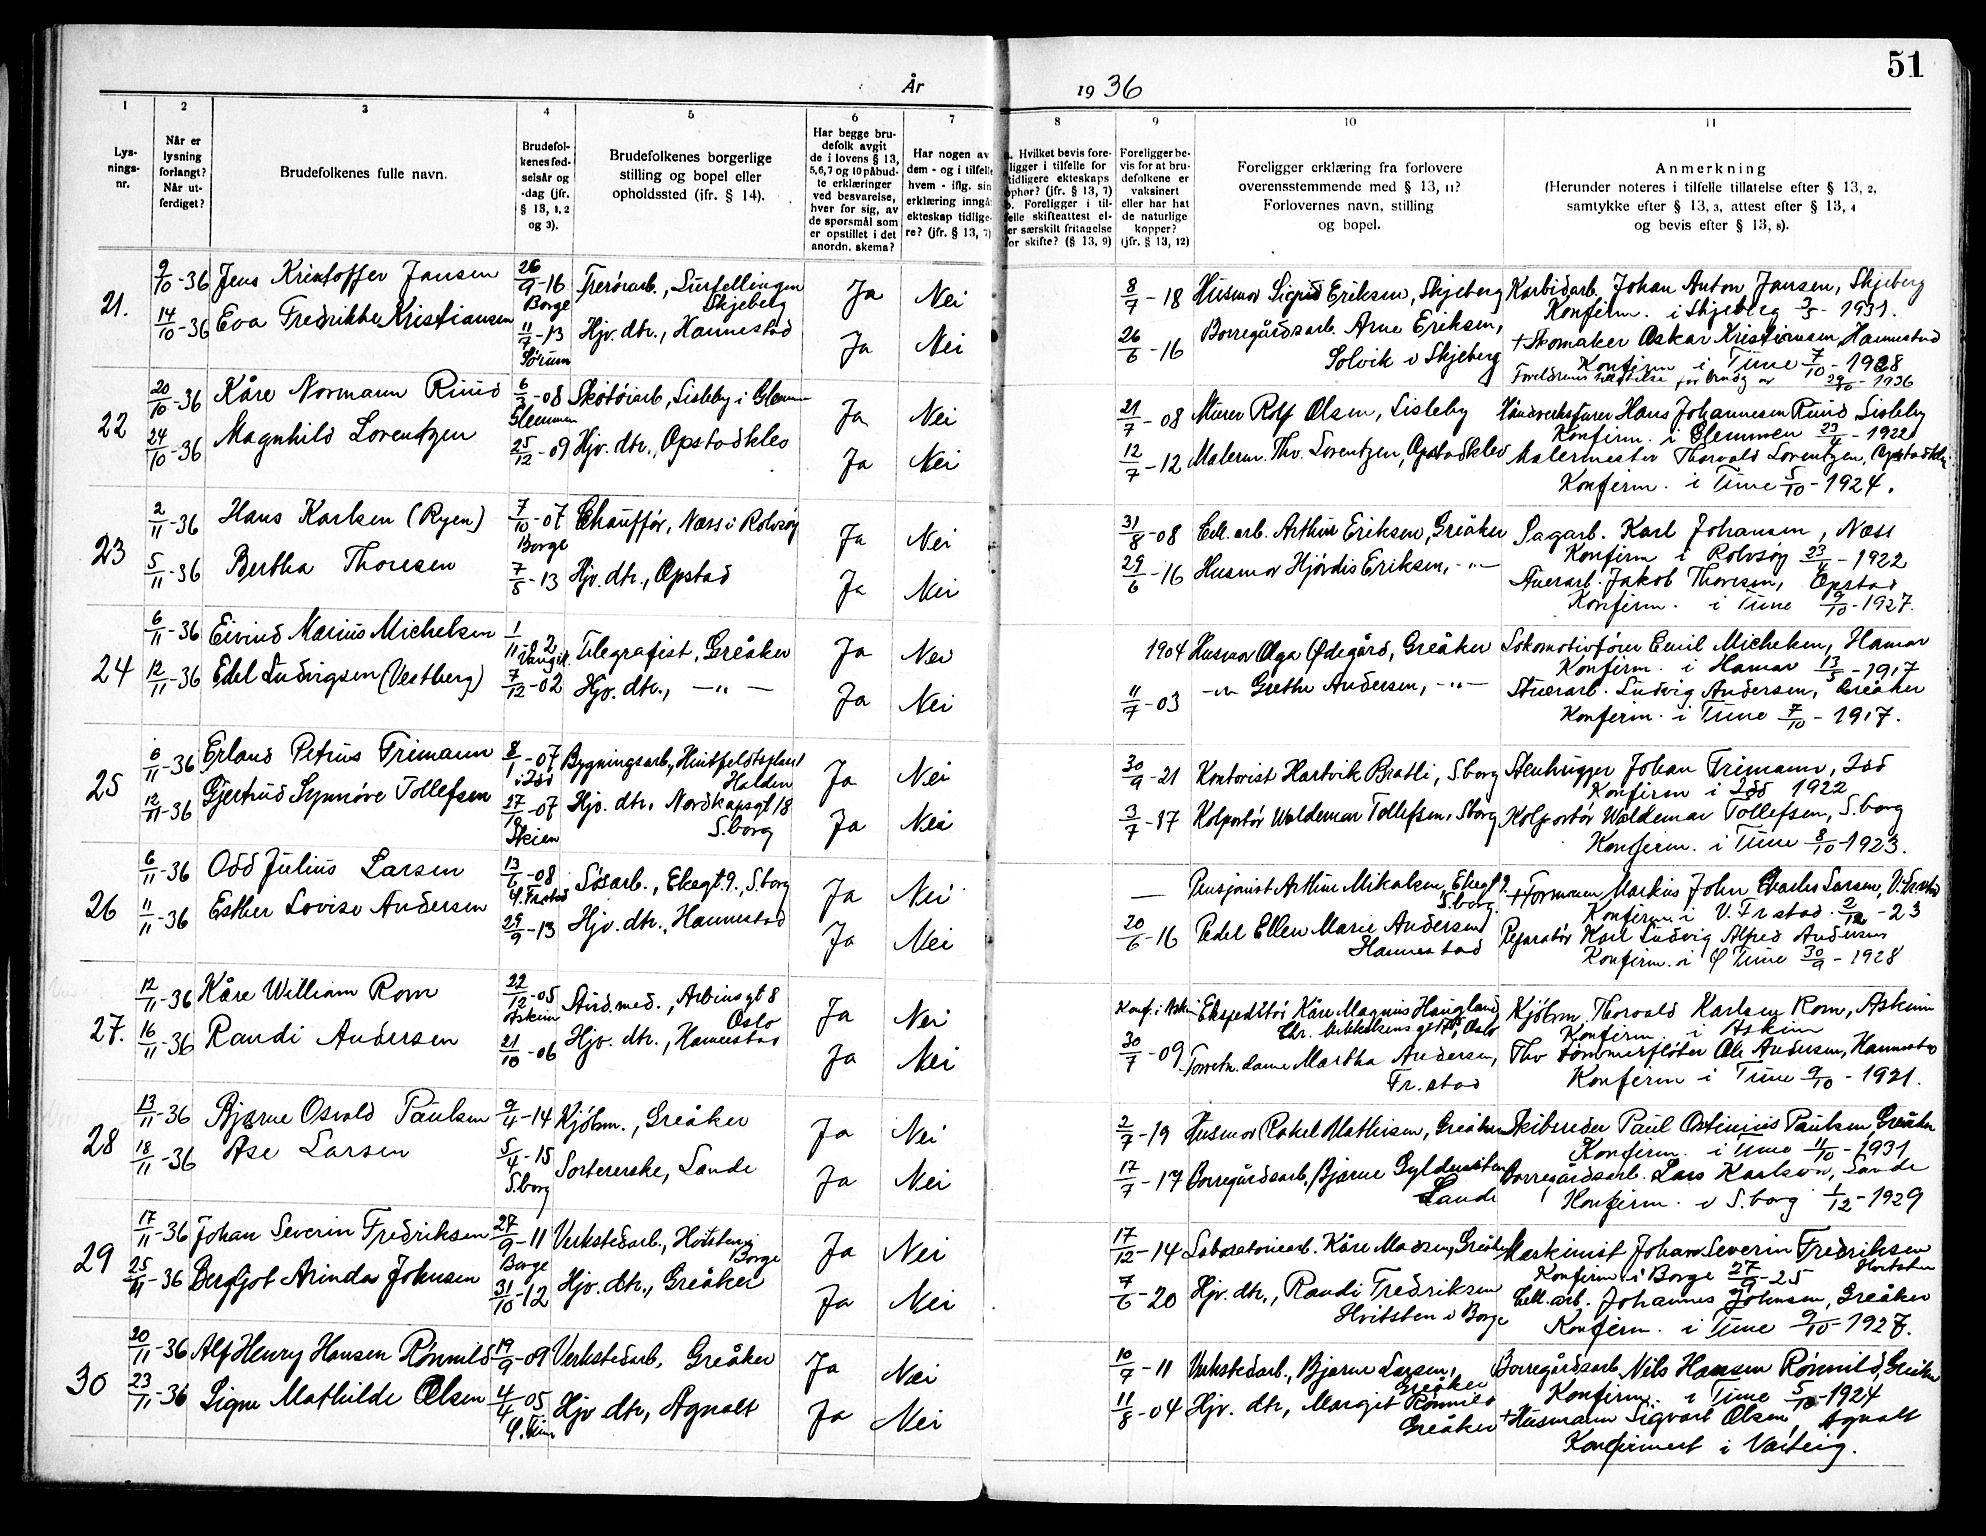 51
År 1936
1
2
3
4
5
6
7
8
9
10
11
Lys-
nings-
nr.
Når er
lysning
forlangt?
Når ut-
ferdiget?
Brudefolkenes fulle navn.
Brudefol-
kenes fød-
selsår og
-dag (jfr.
§ 13, 1, 2
og 3).
Brudefolkenes borgerlige
stilling og bopel eller
opholdssted (jfr. § 14).
Har begge bru-
defolk avgit
de i lovens § 13,
5,6,7 og 10 påbud-
te erklæringer
ved besvarelse,
hver for sig, av
de spørsmål som
er opstillet i det
anordn. skema?
Har nogen av
dem - og i tilfelle
hvem - iflg. sin
erklæring inngå
ekteskap tidlige-
re? (jfr. § 13, 7)
a. Hvilket bevis fore-
ligger i tilfelle for
tidligere ekteskaps
ophør? (jfr. § 13, 7)
b. Foreligger i til-
felle skifteattest el-
er særskilt fritagelse
for skifte? (§ 13, 9)
Foreligger be-
vis for at bru-
defolkene er
vaksinert
eller har hat
de naturlige
kopper?
(jfr. § 13, 12)
Foreligger erklæring fra forlovere
overensstemmende med § 13, 11?
Forlovernes navn, stilling
og bopel.
Anmerkning
(Herunder noteres i tilfelle tillatelse efter § 13, 2,
samtykke efter § 13, 3, attest efter § 13, 4
og bevis efter § 13, 8).
21. 9/10-36 Jens Kristoffer Jansen 26/9-16 Borge Trerørarb., Skjeberg Ja Nei 8/7-18 Husmor Sigrid Eriksen, Skjeberg Karbidarb. Johan Anton Jansen, Skjeberg
Konfirm. i Skjeberg 3/5-1931.
14/10-36 Eva Fredrikke Kristiansen 11/7-13 Sørum Hjv. dtr., Hannestad Ja Nei 26/6-16 Borregårdsarb. Arne Eriksen, Solvik i Skjeberg + Skomaker Oskar Kristiansen, Hannestad
Konfirm. i Tune 7/10-1928
22 20/10-36 Kåre Normann Ruud 6/3-08 Glemmen Skotøiarb, Lisleby i Glemm Ja Nei 21/7-08 Murer Rolf Olsen, Lisleby Hans Johannesen Ruud Lisleby
Konfirm. i Glemmen 23/4-1922
24/10-36 Magnhild Lorentzen 25/12-09 Hjv. dtr., Opstadklev Ja Nei 12/7-12 Malerm. Thv. Lorentzen, Opstadklev Malermester Thorvald Lorentzen, Opstadklev
Konfirm. i Tune 5/10-1924.
23 2/11-36 Hans Karlsen (Ryen) 7/10-07 Borge Chauffør, Næss i Rolvsøy Ja Nei 31/8-08 Cell. arb. Arthur Eriksen, Greåker Sagarb. Karl Johansen, Næss
Konfirm i Rolvsøy 23/4-1922
5/11-36 Bertha Thoresen 7/8-13 Hjv. dtr., Opstad Ja Nei 29/6-16 Husmor Hjørdis Eriksen, -"- Stuerarb. Jakob Thoresen, Opstad
Konfirm. i Tune 9/10-1927.
24 6/11-36 Eivind Marius Michelsen 1/11-02 Telegrafist, Greåker Ja Nei 1904 Husmor Olga Ødegård, Greåker Lokomotivfører Emil Michelsen, Hamar
Konfirm. i Hamar 13/5-1917
12/11-36 Edel Ludvigsen (Vestberg) 7/12-02 Hjv. dtr., -"- Ja Nei 11/7-03 -"- Grethe Andersen, -"- Stuerarb. Ludvig Andersen, Greåker
Konfirm. i Tune 7/10-1917.
25 6/11-36 Erland Petrus Trimann 8/1-07 i Idd Bygningsarb., Halden Ja Nei 30/9-21 Kontorist Hartvik Bratli, S.borg Stenhugger Johan Trimann, Idd
Konfirm i Idd 1922
12/11-36 Gjertrud Synnøve Tollefsen 27/10-07 Skien Hjv. dtr. Nordkapsgt 18 S.borg Ja Nei 3/7-17 Kolportør Waldemar Tollefsen, S.borg Kolportør Waldemar Tollefsen, S.borg
Konfirm. i Tune 8/10-1923.
26 6/11-36 Odd Julius Larsen 13/6-08 Ekegt. 9., S.borg Ja Nei — Pensjonist Arthur Mikalsen, Ekegt 9. S.borg. + Formann Markus John Charles Larsen, V. Fr.stad
Konfirm. i V. Fr.stad. 2/12-23
11/11-36 Esther Lovise Andersen 29/9-13 Hjv. dtr., Hannestad Ja Nei 20/6-16 Pedel Ellen Marie Andersen Hannestad Reparatør Karl Ludvig Alfred Andersen
Konfirm. i Ø Tune 30/9-1928
27. 12/11-36 Kåre William Rom 22/12-05 Askim Stud. med., Arbinsgt 8 Oslo Ja Nei Konf. i Askim Ekspeditør Kåre Magnus Haugland, Oslo Kjøbm. Thorvald Karlsen Rom, Askim
Konfirm. i Askim
16/11-36 Randi Andersen 21/10-06 Hjv. dtr., Hannestad Ja Nei 30/7-09 Forretn. dame Martha Andersen, Fr.stad Tømmerfløter Ole Andersen, Hannestad
Konfirm i Tune 9/10-1921.
28 13/11-36 Bjarne Osvald Paulsen 9/4-14 Kjøbm., Greåker Ja Nei 2/7-19 Husmor Rakel Mathisen, Greåker Skibsreder Paul Ostinius Paulsen, Greåker
Konfirm. i Tune 11/10-1931
18/11-36 Åse Larsen 5/4-15 S.borg Sortererske, Sande Ja Nei 17/7-17 Borregårdsarb. Bjarne Gyldensten Sande Borregårdsarb. Lars Karlsen, Sande
Konfirm. i S.borg 1/12-1929
29 17/11-36 Johan Severin Fredriksen 27/9-11 Borge Verkstedarb., Hvitsten i Borge Ja Nei 17/12-14 Laboratoriearb. Kåre Madsen, Greåker Maskinist Johan Severin Fredriksen Hvitsten
Konfirm. i Borge 27/9-25
25/11-36 Bergljot Arinda Johnsen 31/10-12 Hjv. dtr., Greåker Ja Nei 7/6-20 Hjv. dtr., Randi Fredriksen Hvitsten i Borge Cell. arb. Johannes Johnsen, Greåker
Konfirm. i Tune 9/10-1927.
30 20/11-36 Alf Henry Hansen Rønnild 19/9-09 Verkstedarb, Greåker Ja Nei 10/7-11 Verkstedarb., Bjarne Larsen, Greåker Borregårdsarb. Nils Hansen Rønnild, Greåker
Konfirm. i Tune 5/10-1924
23/11-36 Signe Mathilde Olsen 4/4-05 Hjv dtr, Agnalt Ja Nei 11/8-04 Hjv. dtr, Margit Rønnild Greåker + Husmann Sigvart Olsen, Agnalt
Konfirmert i Varteig.